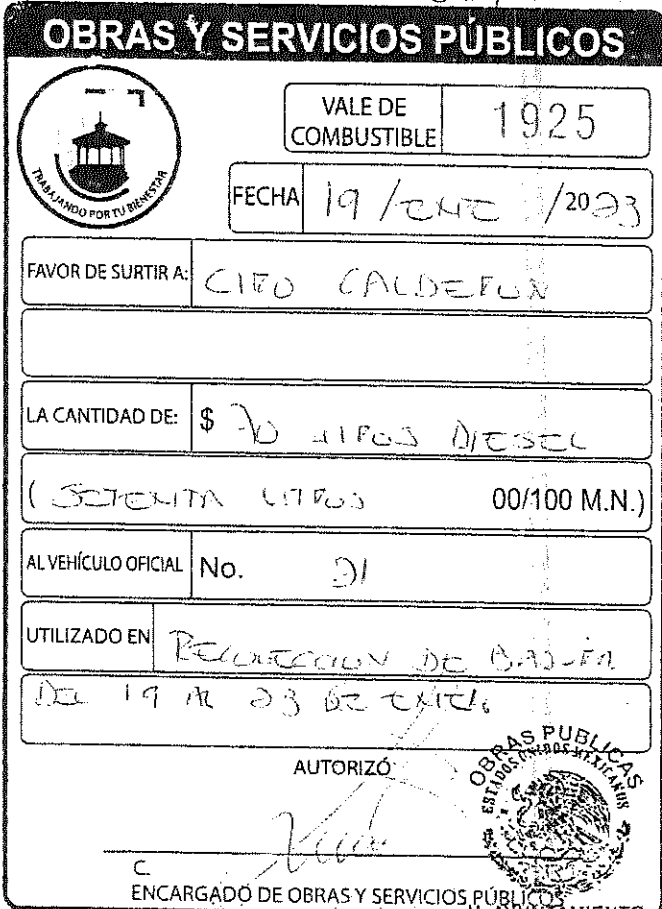 OBRAS Y SERVICIOS PÚBLICOS
TRABAJANDO POR TU BIENESTAR
VALE DE COMBUSTIBLE 1925
FECHA 19 / ENE /2023
FAVOR DE SURTIR A: CIRO CALDERON
LA CANTIDAD DE: $ 70 LITROS DIESEL
( SETENTA LITROS 00/100 M.N.)
AL VEHÍCULO OFICIAL No. 21
UTILIZADO EN RECOLECCION DE BASURA
DEL 19 AL 23 DE ENERO
AUTORIZÓ
OBRAS PUBLICAS
ESTADOS UNIDOS MEXICANOS
C.
ENCARGADO DE OBRAS Y SERVICIOS PÚBLICOS